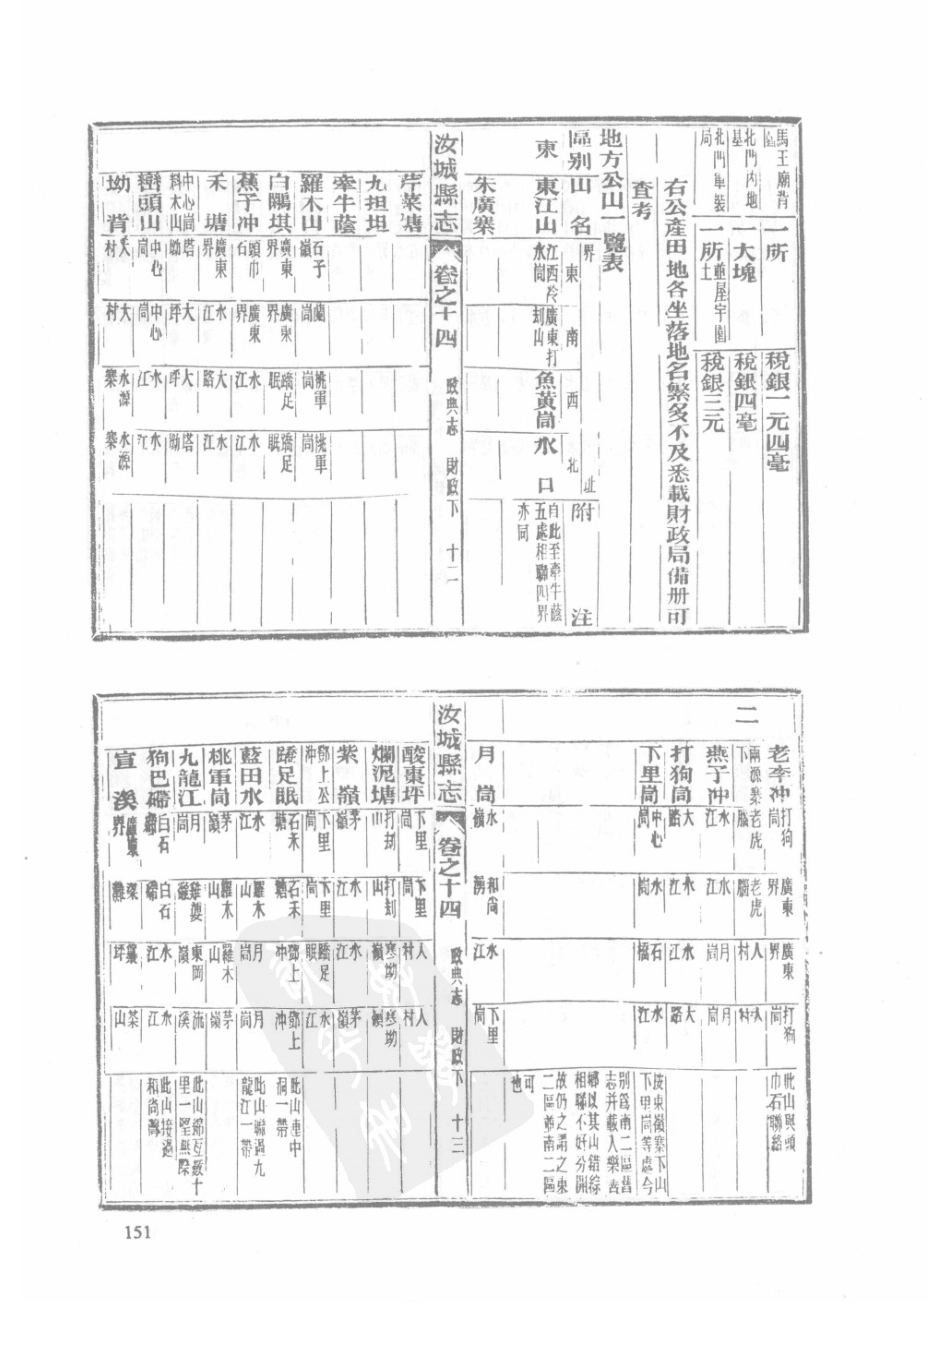 馬王廟背 一所 稅銀一元四毫
北門內地基 一大塊 稅銀四毫
北門軍裝局 一所 並屋宇園土 稅銀三元
右公產田地各坐落地名繁多不及悉載財政局備册可
查考
地方公山一覽表
區别 山名 界 東 南 西 北 址 附注
東 東江山 江西冷水崗 廣東打刦山 魚黃崗 水口 自此至牽牛蔭五處相聯四界亦同
朱廣寨
汝城縣志 卷之十四 政典志 財政下 十二
芹菜塘
九担坦
牽牛蔭
羅木山 石子嶺 蘭崗 桃軍崗 桃軍崗
白䦨堪 廣東界 廣東界 蹻足眠 蹻足眠
蕉子冲 頭巾石 廣東界 水江 水江
禾塘 廣東界 水江 大路 水江
中心崗料木山 塔坳 大坪 大坪 塔坳
巒頭山 中心崗 中心崗 水江 水江
坳背 大村 大村 水源寨 水源寨
二
老李冲 打狗崗 廣東界 廣東界 打狗崗 此山與頭巾石聯絡
兩源寨下 老虎腦 老虎腦 人村 人村
燕子冲 水江 水江 月崗 月崗
打狗崗 大路 水江 水江 大路
下里崗 中心崗 水崗 石橋 水江 按東嶺寨下山下里崗等處今
别爲南二區舊志并載入樂善
鄉以其山錯綜相聯不好分開
故仍之謂之東二區卽南二區
可也
月崗 水嶺 和尚澇 水江 下里崗
汝城縣志 卷之十四 政典志 財政下 十三
酸棗坪 下里崗 下里崗 人村 人村
爛泥塘 打刦山 打刦山 寒坳嶺 寒坳嶺
紫嶺 茅嶺 水江 水江 茅嶺
鄧上公冲 下里崗 下里崗 蹻足眠 水江
蹻足眠 石禾塘 石禾塘 鄧上冲 鄧上冲 此山連中洞一帶
藍田水 水江 羅木山 月崗 月崗 此山聯過九龍江一帶
桃軍崗 茅嶺 羅木山 羅木山 茅嶺
九龍江 月崗 雞婆 東岡嶺 流溪 此山綿亙數十里一望無際
狗巴礤 白石礤 白石礤 水江 水江 此山接過和尚澇
宣溪 廣東界 茶山
151